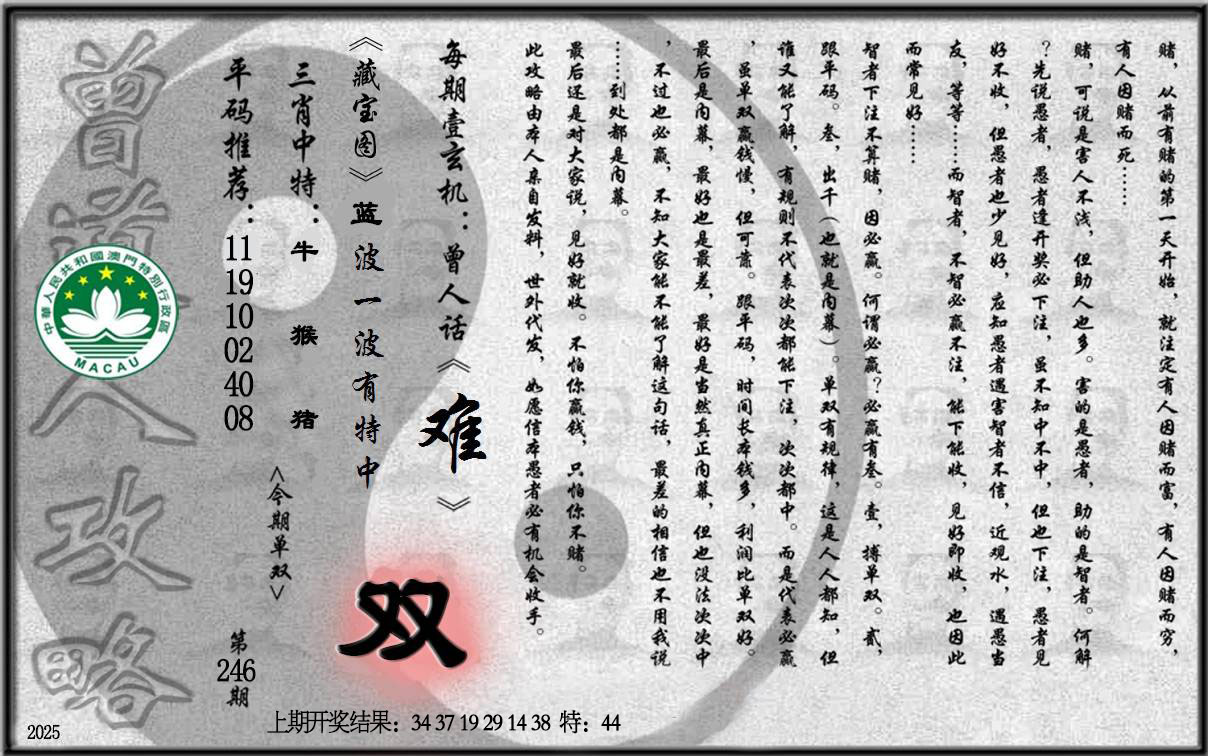 赌，从前有赌的第一天开始，就注定有人因赌而富，有人因赌而穷，
有人因赌而死……
赌，可说是害人不浅，但助人也多。害的是愚者，助的是智者。何解
？先说愚者，愚者逢开奖必下注，虽不知中不中，但也下注，愚者见
好不收，但愚者也少见好，应知愚者遇害智者不信，近观水，遇愚当
友，等等……而智者，不智必赢不注，能下能收，见好即收，也因此
而常见好……
智者下注不算赌，因必赢。何谓必赢？必赢有叁。壹，搏单双。贰，
跟平码。叁，出千（也就是内幕）。单双有规律，这是人人都知，但
谁又能了解，有规则不代表次次都能下注，次次都中。而是代表必赢
，虽单双赢钱慢，但可靠。跟平码，时间长本钱多，利润比单双好。
最后是内幕，最好也是最差，最好是当然真正内幕，但也没法次次中
，不过也必赢，不知大家能不能了解这句话，最差的相信也不用我说
……到处都是内幕。
最后还是对大家说，见好就收。不怕你赢钱，只怕你不赌。
此攻略由本人亲自发料，世外代发，如愿信本愚者必有机会收手。
每期壹玄机：曾人话《难》
《藏宝图》蓝波一波有特中
双
三肖中特：牛 猴 猪
<今期单双>
平码推荐：11 19 10 02 40 08
第246期
曾道人攻略
中華人民共和國澳門特別行政區
MACAU
2025
上期开奖结果：34 37 19 29 14 38 特：44